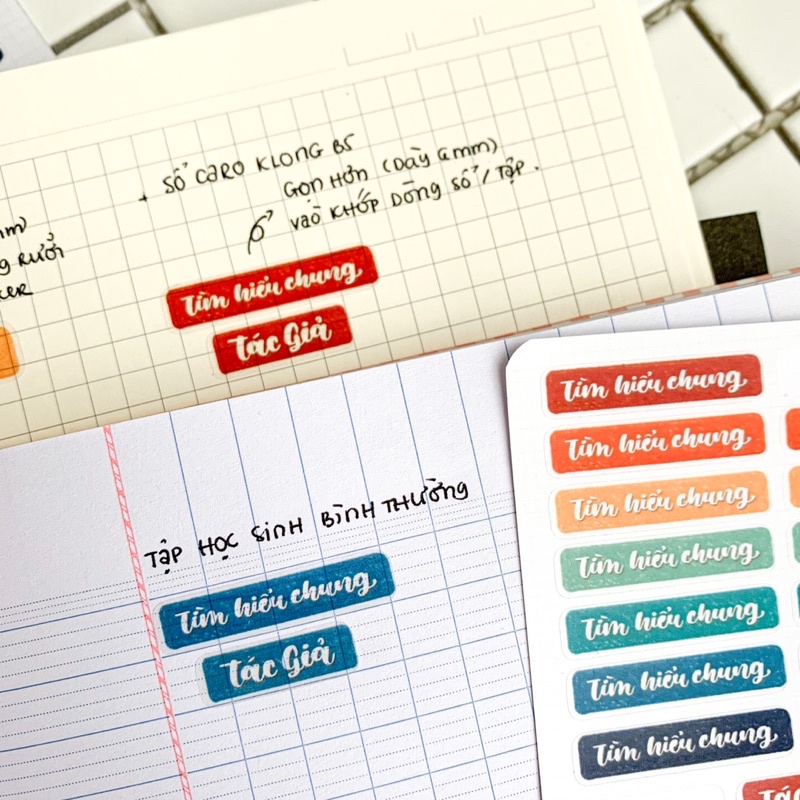 + SỔ CARO KLONG B5
GỌN HƠN (DÀY 6mm)
VÀO KHỚP DÒNG SỔ / TẬP.
mm)
g RƯỞI
KER
Tìm hiểu chung
Tác Giả
TẬP HỌC SINH BÌNH THƯỜNG
Tìm hiểu chung
Tác Giả
Tìm hiểu chung
Tìm hiểu chung
Tìm hiểu chung
Tìm hiểu chung
Tìm hiểu chung
Tìm hiểu chung
Tìm hiểu chung
Tác